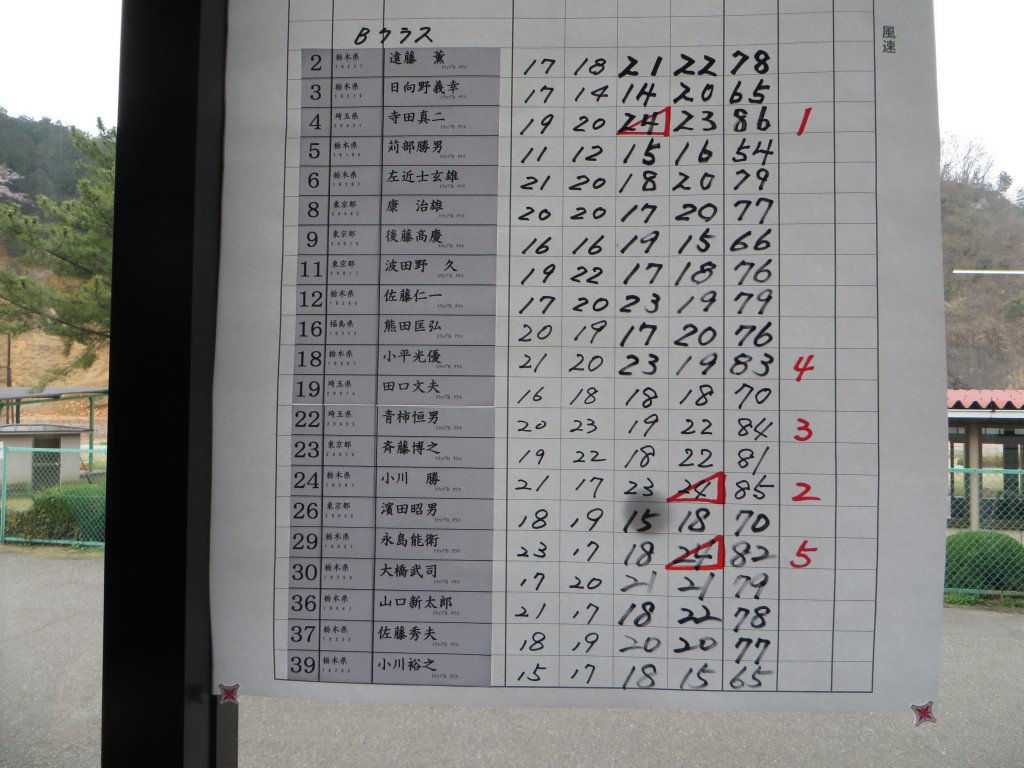 風速
Bクラス
2 栃木県 遠藤 薫 17 18 21 22 78
3 栃木県 日向野義幸 17 14 14 20 65
4 埼玉県 寺田真二 19 20 24 23 86 1
5 栃木県 苅部勝男 11 12 15 16 54
6 栃木県 左近士玄雄 21 20 18 20 79
8 東京都 康 治雄 20 20 17 20 77
9 東京都 後藤高慶 16 16 19 15 66
11 東京都 波田野 久 19 22 17 18 76
12 栃木県 佐藤仁一 17 20 23 19 79
16 福島県 熊田匡弘 20 19 17 20 76
18 栃木県 小平光優 21 20 23 19 83 4
19 埼玉県 田口文夫 16 18 18 18 70
22 埼玉県 青柿恒男 20 23 19 22 84 3
23 東京都 斉藤博之 19 22 18 22 81
24 栃木県 小川 勝 21 17 23 24 85 2
26 東京都 濱田昭男 18 19 15 18 70
29 栃木県 永島能衛 23 17 18 24 82 5
30 栃木県 大橋武司 17 20 21 21 79
36 栃木県 山口新太郎 21 17 18 22 78
37 栃木県 佐藤秀夫 18 19 20 20 77
39 栃木県 小川裕之 15 17 18 15 65